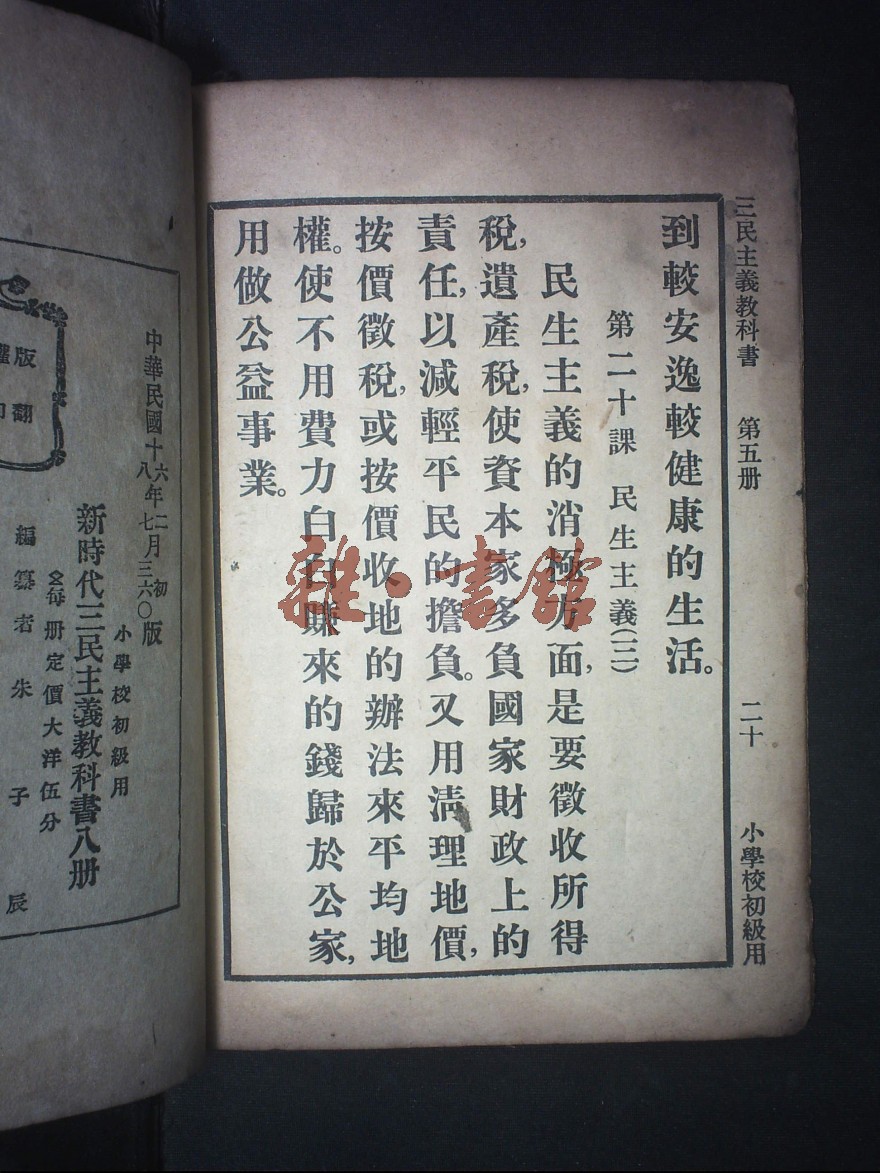 三民主義教科書 第五册 二十 小學校初級用
到較安逸較健康的生活。
第二十課 民生主義(三)
民生主義的消極方面,是要徵收所得
稅,遺產稅,使資本家多負國家財政上的
責任,以減輕平民的擔負。又用淸理地價,
按價徵稅,或按價收地的辦法來平均地
權。使不用費力白白賺來的錢歸於公家,
用做公益事業。
雜·書館
版權
翻印
中華民國十六年二月初版
八年七月三六〇版
小學校初級用
新時代三民主義教科書八册
每册定價大洋伍分
編纂者朱子辰